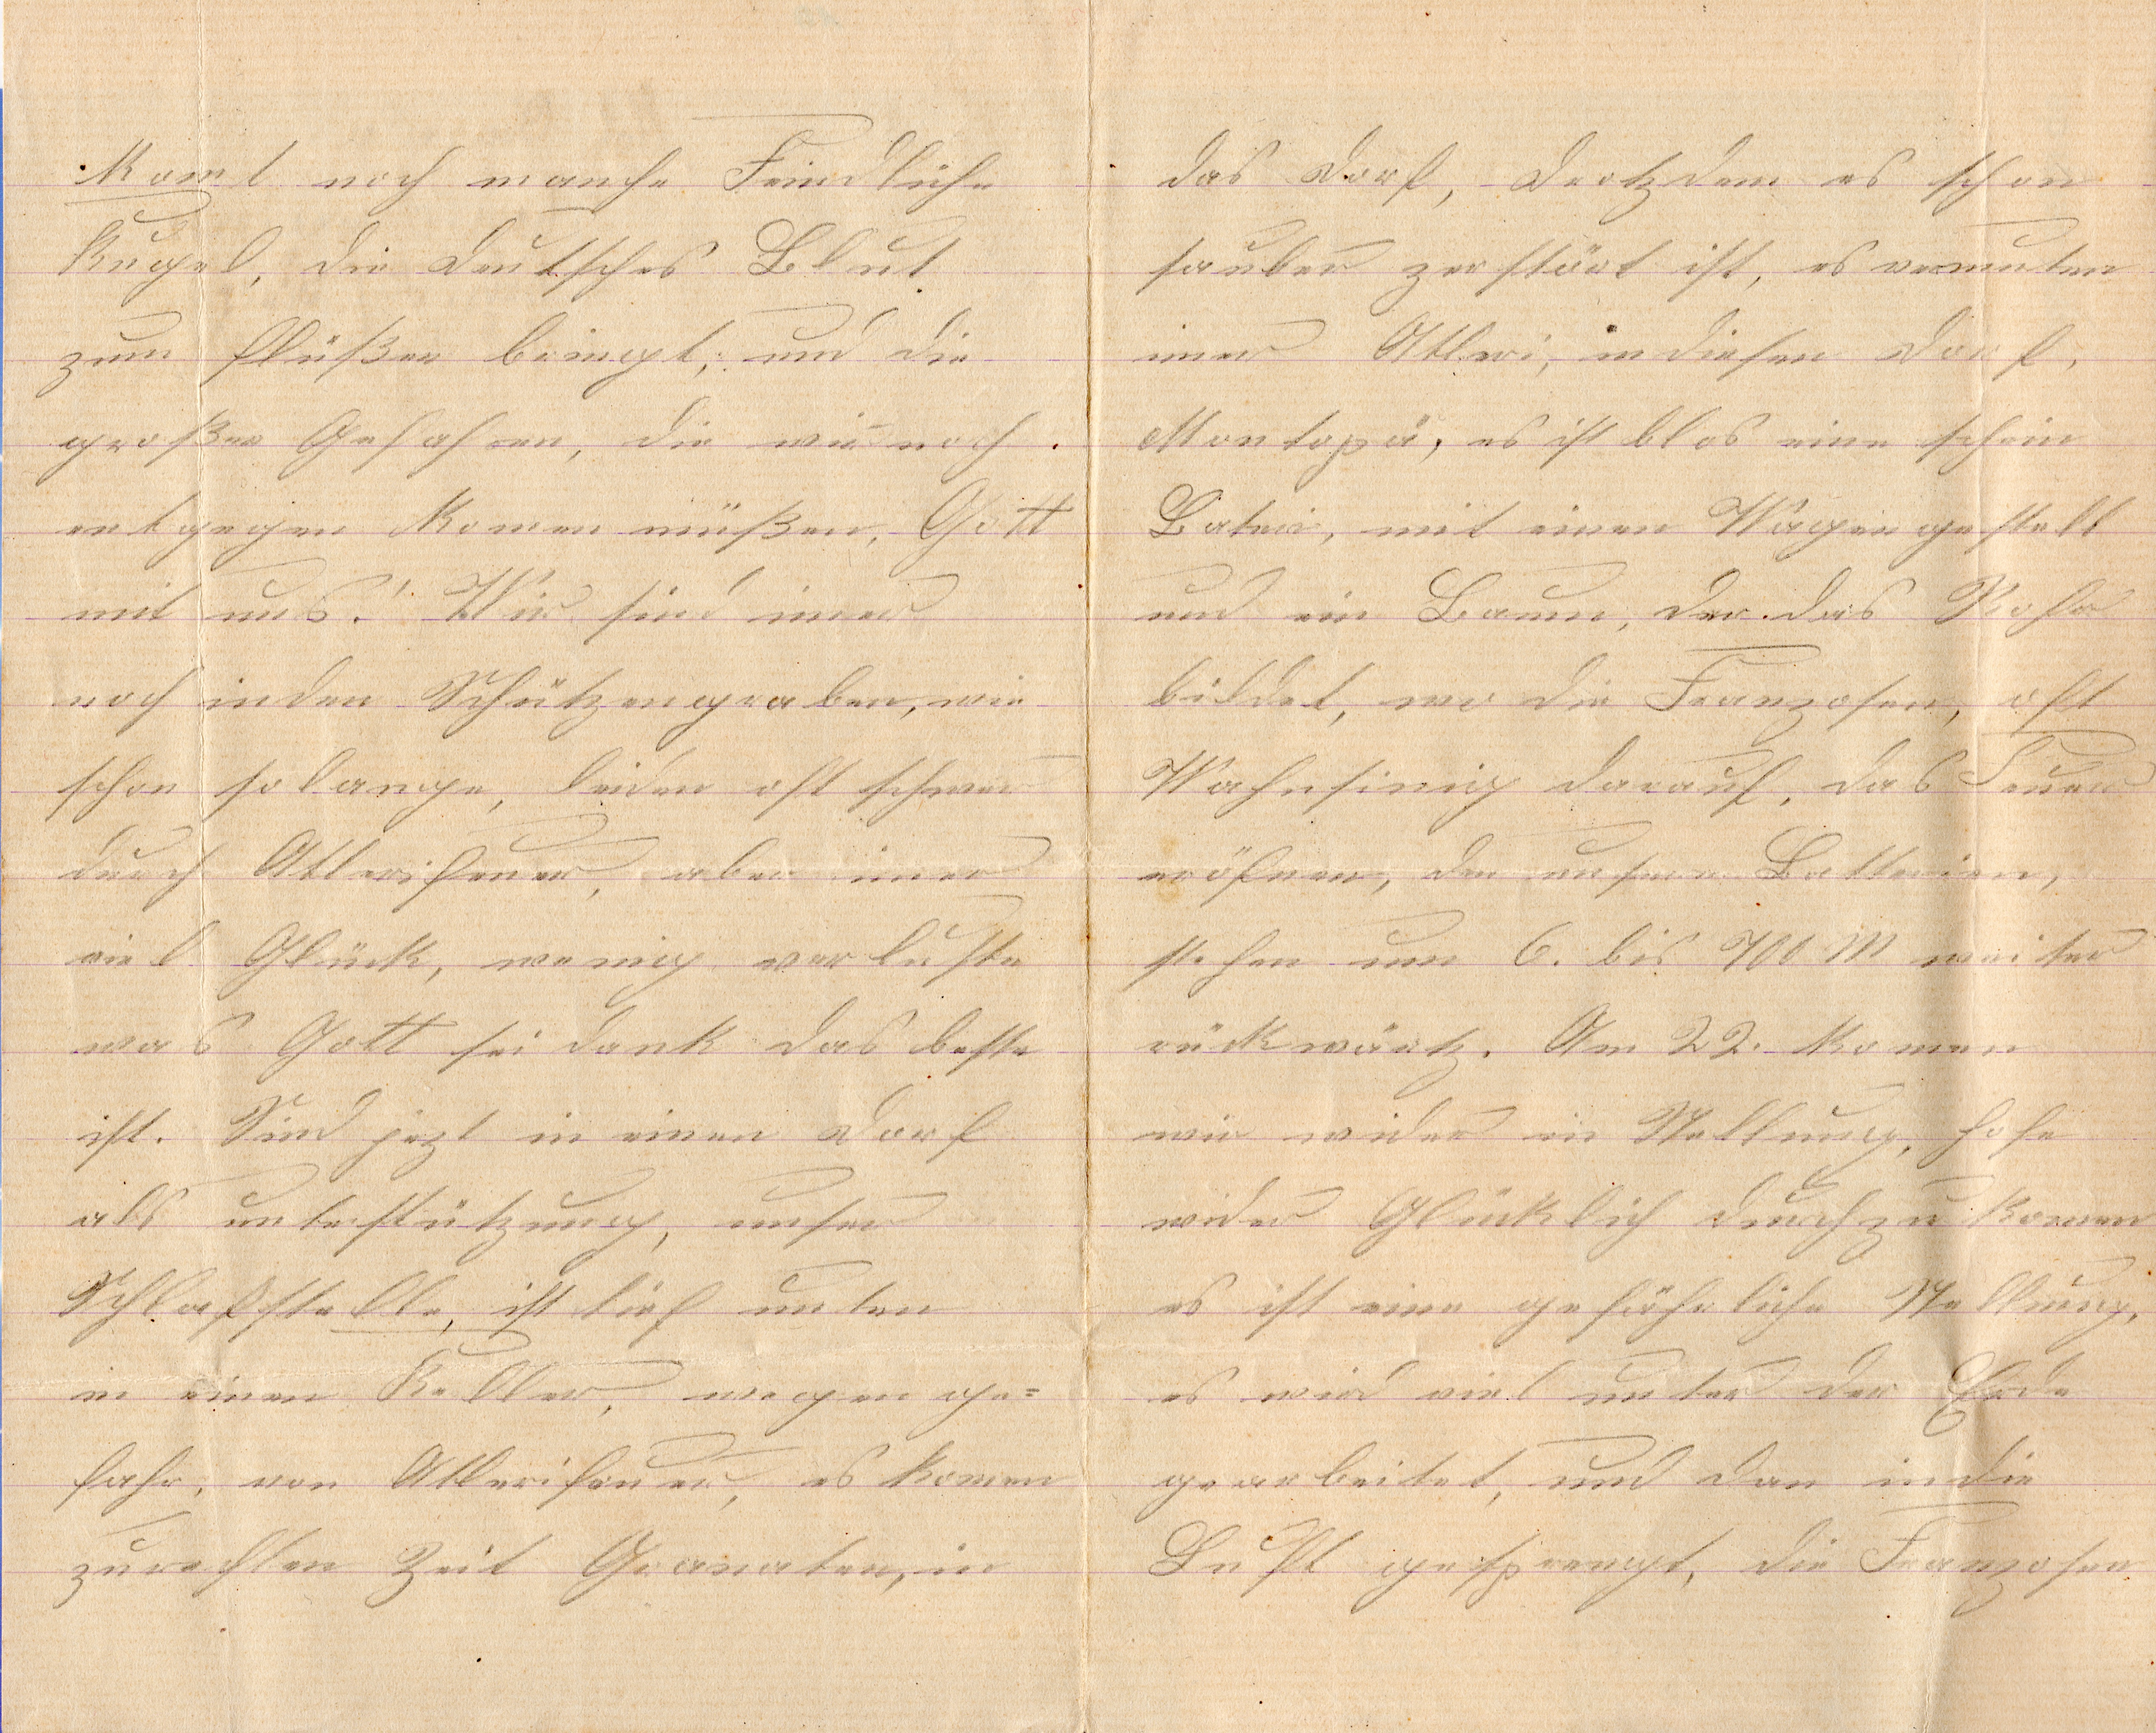 komt noch manche Feindliche
Kugel, die deutsches Blut
zum flüßen bringt, und die
großen Gefahren, die wir noch
entgegen komen müßen, Gott
mit uns! Wir sind imer
noch in den Schützengraben, wie
schon solange, leiden oft schwer
durch Atlerifeuer, aber imer
viel Glück, wenig verluste
was Gott sei dank das beste
ist. Sind jezt in einen Dorf
als unterstützung, unser
Schlafstelle, ist tief unten
in einen Keller, wegen ge=
fahr, von Atlerifeuer, es komen
zurechten Zeit Granaten, in
das Dorf, drotzdem es schon
sauber zerstört ist, es vermuten
imer Atleri, in diesen Dorf,
Montopä, es ist blos eine schein
Baterie, mit einen Wagengestell
und ein Baum, der das Rohr
bildet, wo die Franzosen, oft
Wahnsinig darauf, das Feuer
eröfnen, den unsere Batterien,
stehen um 6. bis 700 M weiter
rückwärtz. Am 22. komen
wir wider in Stellung, hofe
wider Glücklich durchzukomen
es ist eine gefährliche Stellung,
es wird viel unter der Erde
gearbeitet, und dan in die
Luft gesprengt, die Franzosen